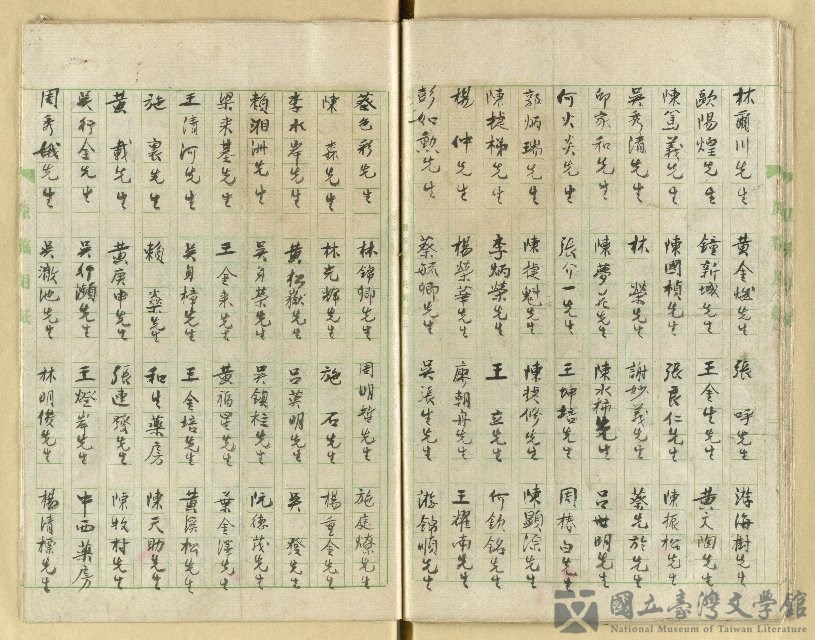 林爾川先生 黃金燃先生 張呼先生 游海樹先生
歐陽煌先生 鐘新城先生 王金生先生 黃文陶先生
陳篤義先生 陳國禎先生 張良仁先生 陳振松先生
吳秀清先生 林榮先生 謝妙義先生 蔡先於先生
邱家和先生 陳夢花先生 陳水柿先生 呂世明先生
何火炎先生 張介一先生 王坤培先生 周椿白先生
郭炳瑞先生 陳捷魁先生 陳捷修先生 陳顯淙先生
陳捷梯先生 李炳榮先生 王立先生 何欽銘先生
楊仲先生 楊榮華先生 廖朝舟先生 王耀南先生
彭如勲先生 蔡毓卿先生 吳漲生先生 游錦順先生
色彩先生 林錦卿先生 周明哲先生 施庭燎先生
陳森先生 林光輝先生 施石先生 楊重金先生
李水岸先生 黃松嶽先生 呂英明先生 吳發先生
賴湘洲先生 吳身榮先生 吳鎮柱先生 阮德茂先生
梁來基先生 王金東先生 黃福星先生 葉金澤先生
王清河先生 吳身樟先生 王金培先生 黃溪松先生
施裏先生 賴燊先生 和生藥房 陳天助先生
黃載先生 黃庚申先生 張連發先生 陳牧村先生
吳行全先生 吳行瀨先生 王燈岸先生 中西藥房
周秀娥先生 吳激池先生 林明俊先生 楊清標先生
國立臺灣文學館
National Museum of Taiwan Literature